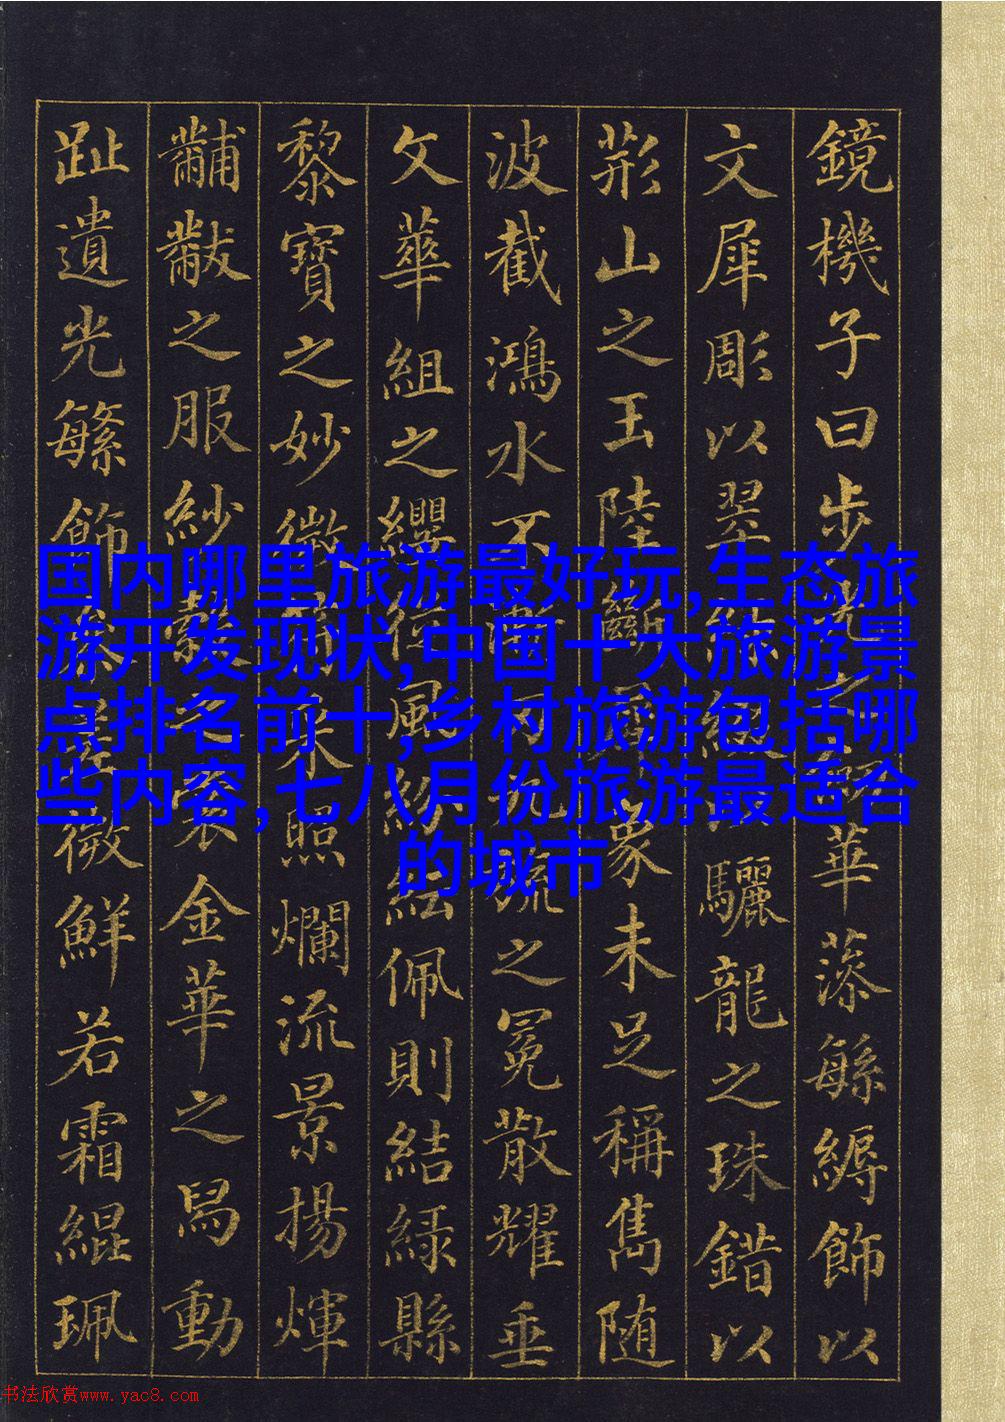 鏡機子曰步光之華藻緐縟飾以
文犀彫以翠綠驪龍之珠錯以
荊山之玉陸斷象未足稱雋随
波截鴻水不漸九旒之冕散耀垂
文華組之纓從風紛紜佩則結緑縣
黎寶之妙微采照爛流景揚煇
黼黻之服紗縠之裳金華之舄動
趾遺光繁飾微鮮若霜緄珮
国内哪里旅游最好玩,生态旅
游开发现状,中国十大旅游景
点排名前十,乡村旅游包括哪
些内容,七八月份旅游最适合
的城市
书法欣赏www.yac8.com